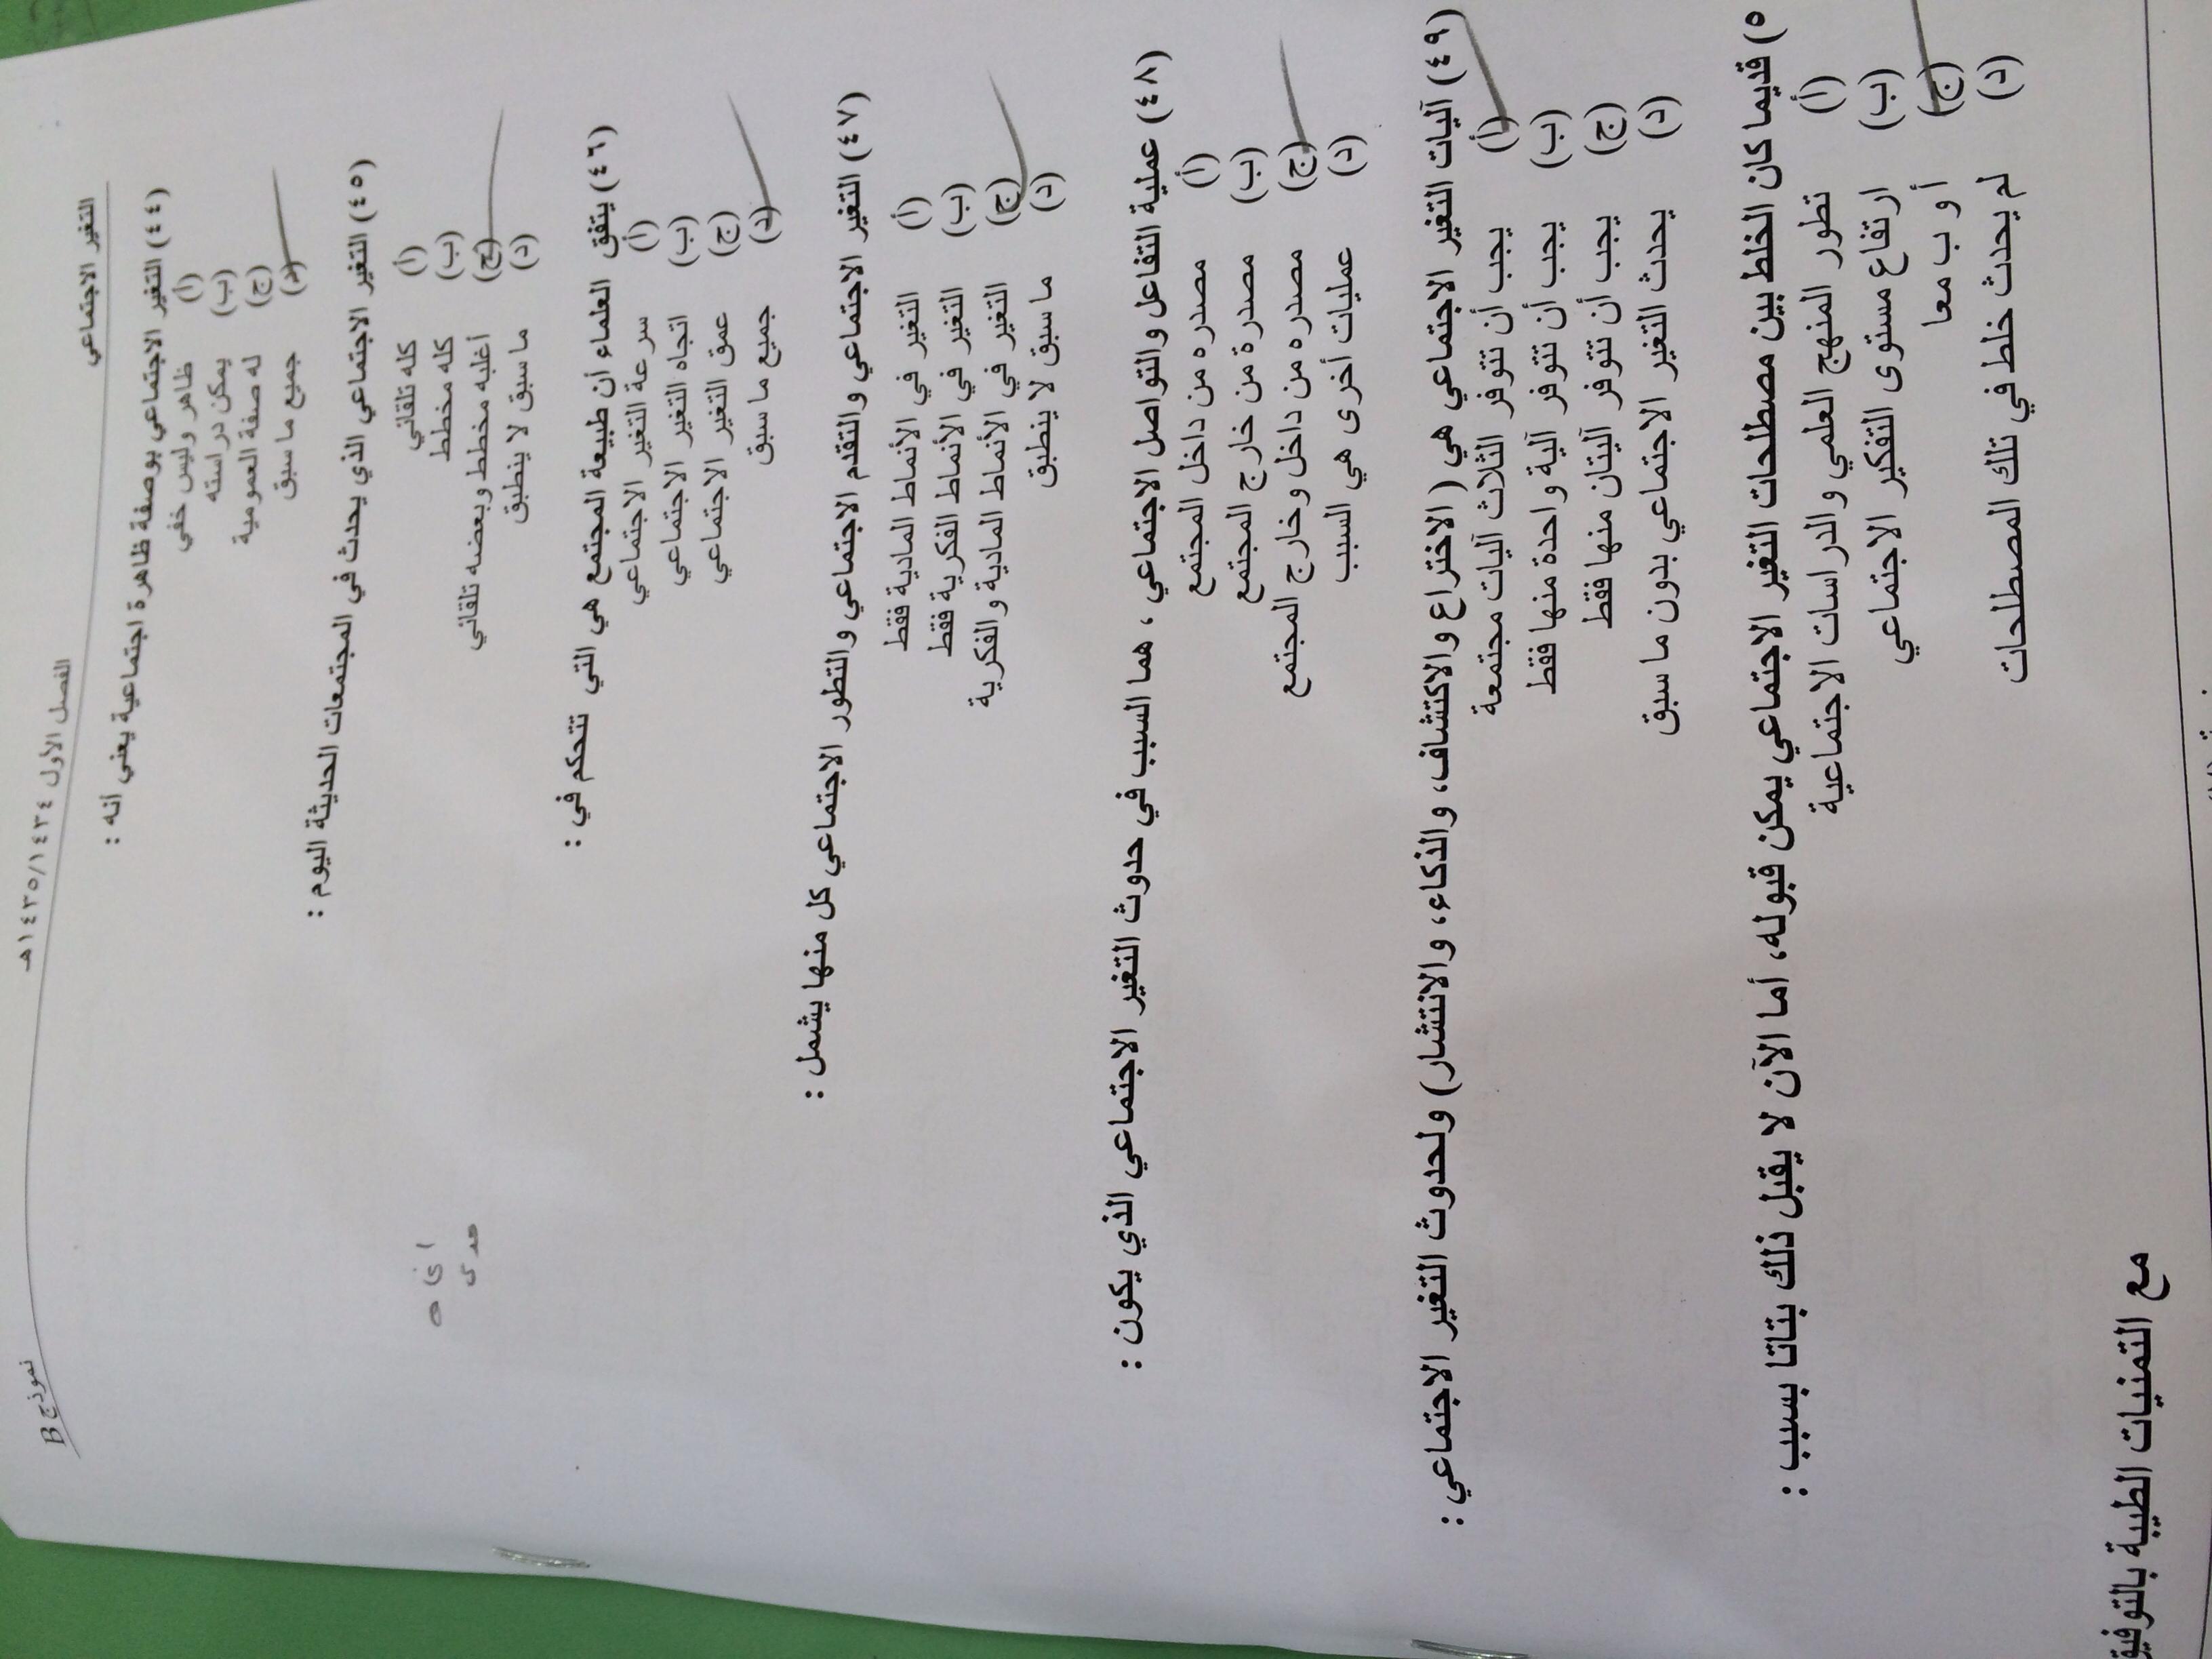 التغير الاجتماعي
الفصل الأول ١٤٣٥/١٤٣٤هـ
نموذج B
٤٤) التغير الاجتماعي بوصفة ظاهرة اجتماعية يعني أنه :
(أ) ظاهر وليس خفي
(ب) يمكن دراسته
(ج) له صفة العمومية
(د) جميع ما سبق
٤٥) التغير الاجتماعي الذي يحدث في المجتمعات الحديثة اليوم :
(أ) كله تلقائي
(ب) كله مخطط
(ج) أغلبه مخطط وبعضه تلقائي
(د) ما سبق لا ينطبق
٤٦) يتفق العلماء أن طبيعة المجتمع هي التي تتحكم في :
(أ) سرعة التغير الاجتماعي
(ب) اتجاه التغير الاجتماعي
(ج) عمق التغير الاجتماعي
(د) جميع ما سبق
٤٧) التغير الاجتماعي والتقدم الاجتماعي والتطور الاجتماعي كل منها يشمل :
(أ) التغير في الأنماط المادية فقط
(ب) التغير في الأنماط الفكرية فقط
(ج) التغير في الأنماط المادية والفكرية
(د) ما سبق لا ينطبق
٤٨) عملية التفاعل والتواصل الاجتماعي ، هما السبب في حدوث التغير الاجتماعي الذي يكون :
(أ) مصدره من داخل المجتمع
(ب) مصدرة من خارج المجتمع
(ج) مصدره من داخل وخارج المجتمع
(د) عمليات أخرى هي السبب
٤٩) آليات التغير الاجتماعي هي ( الاختراع والاكتشاف، والذكاء، والانتشار) ولحدوث التغير الاجتماعي :
(أ) يجب أن تتوفر الثلاث آليات مجتمعة
(ب) يجب أن تتوفر آلية واحدة منها فقط
(ج) يجب أن تتوفر آليتان منها فقط
(د) يحدث التغير الاجتماعي بدون ما سبق
٥) قديما كان الخلط بين مصطلحات التغير الاجتماعي يمكن قبوله، أما الآن لا يقبل ذلك بتاتا بسبب :
(أ) تطور المنهج العلمي والدراسات الاجتماعية
(ب) ارتفاع مستوى التفكير الاجتماعي
(ج) أ و ب معا
(د) لم يحدث خلط في تلك المصطلحات
مع التمنيات الطيبة بالتوفيق